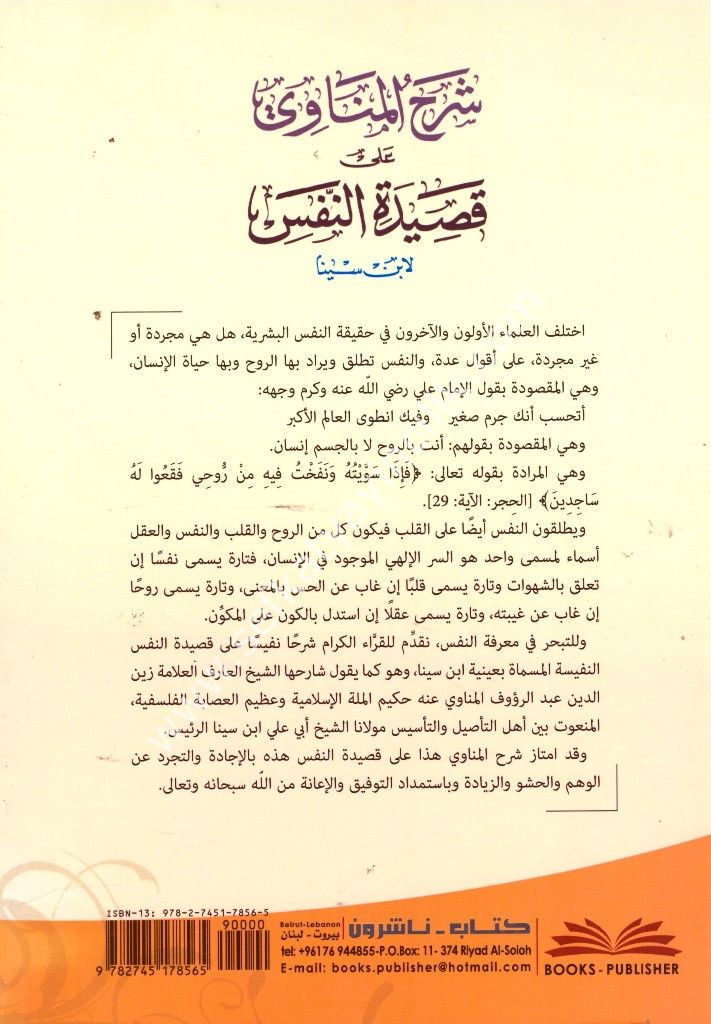 شرح المناوي
على
قصيدة النفس
لابن سينا
اختلف العلماء الأولون والآخرون في حقيقة النفس البشرية، هل هي مجردة أو
غير مجردة، على أقوال عدة، والنفس تطلق ويراد بها الروح وبها حياة الإنسان،
وهي المقصودة بقول الإمام علي رضي الله عنه وكرم وجهه:
أتحسب أنك جرم صغير وفيك انطوى العالم الأكبر
وهي المقصودة بقولهم: أنت بالروح لا بالجسم إنسان.
وهي المرادة بقوله تعالى: ﴿فَإِذَا سَوَّيْتُهُ وَنَفَخْتُ فِيهِ مِنْ رُّوحِي فَقَعُوا لَهُ
سَاجِدِينَ﴾ [الحِجر: الآية: 29].
ويطلقون النفس أيضًا على القلب فيكون كل من الروح والقلب والنفس والعقل
أسماء لمسمى واحد هو السر الإلهي الموجود في الإنسان، فتارة يسمى نفسًا إن
تعلق بالشهوات وتارة يسمى قلبًا إن غاب عن الحس بالمعنى، وتارة يسمى روحًا
إن غاب عن غيبته، وتارة يسمى عقلًا إن استدل بالكون على المكوِّن.
وللتبحر في معرفة النفس، نقدِّم للقرَّاء الكرام شرحًا نفيسًا على قصيدة النفس
النفيسة المسماة بعينية ابن سينا، وهو كما يقول شارحها الشيخ العارف العلامة زين
الدين عبد الرؤوف المناوي عنه حكيم الملة الإسلامية وعظيم العصابة الفلسفية،
المنعوت بين أهل التأصيل والتأسيس مولانا الشيخ أبي علي ابن سينا الرئيس.
وقد امتاز شرح المناوي هذا على قصيدة النفس هذه بالإجادة والتجرد عن
الوهم والحشو والزيادة وباستمداد التوفيق والإعانة من الله سبحانه وتعالى.
ISBN-13: 978-2-7451-7856-5
90000
9 782745 178565
كتاب - ناشرون
Beirut-Lebanon
بيروت - لبنان
tel: +96176 944855-P.O.Box: 11- 374 Riyad Al-Soloh
E-mail: books.publisher@hotmail.com
BOOKS - PUBLISHER